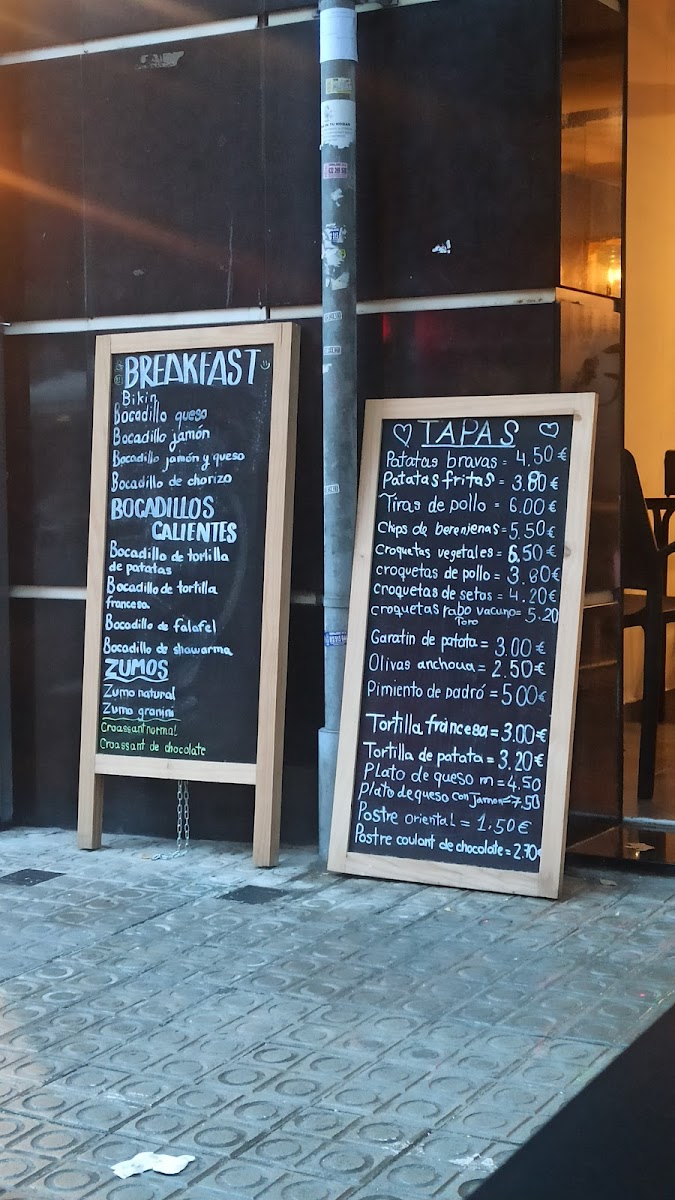 BREAKFAST
Bikin
Bocadillo queso
Bocadillo jamón
Bocadillo jamón y queso
Bocadillo de chorizo
BOCADILLOS
CALIENTES
Bocadillo de tortilla
de patatas
Bocadillo de tortilla
francesa
Bocadillo de falafel
Bocadillo de shawarma
ZUMOS
Zumo natural
Zumo granini
Croassant normal
Croassant de chocolate
TAPAS
Patatas bravas = 4.50 €
Patatas fritas = 3.80 €
Tiras de pollo = 6.00 €
Chips de berenjenas = 5.50 €
croquetas vegetales = 6.50 €
croquetas de pollo = 3.80 €
croquetas de setas = 4.20 €
croquetas rabo vacuno = 5.20
Toro
Garatin de patata = 3.00 €
Olivas anchoua = 2.50 €
Pimiento de padró = 5.00 €
Tortilla francesa = 3.00 €
Tortilla de patata = 3.20 €
Plato de queso m = 4.50
Plato de queso con Jamon = 7.50
Postre oriental = 1.50 €
Postre coulant de chocolate = 2.70 €